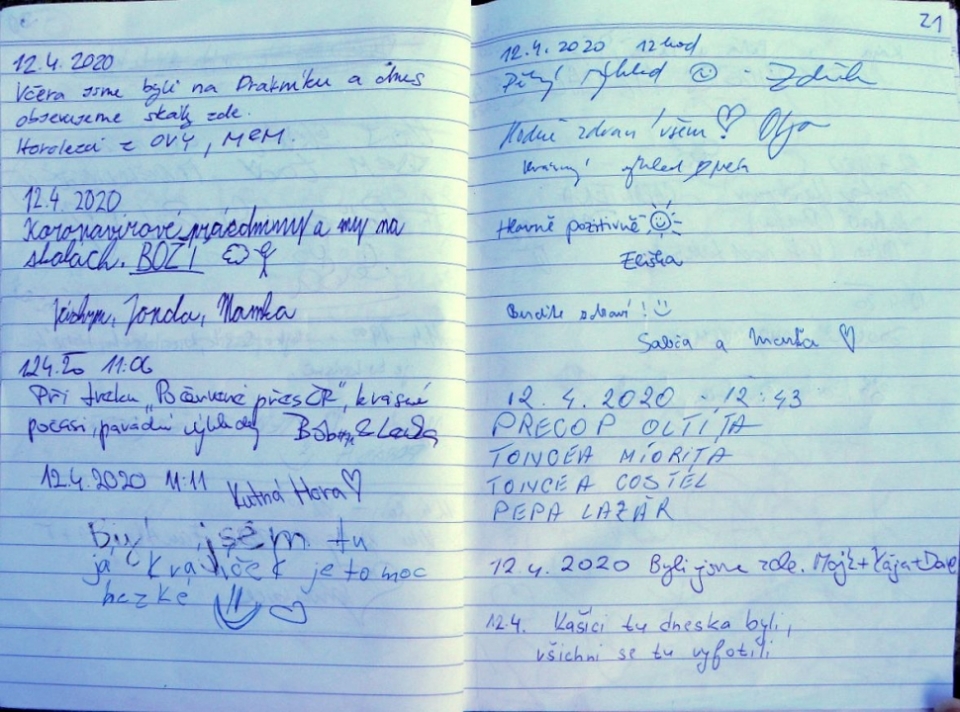 12.4.2020
Včera jsme byli na Drátníku a dnes
objevujeme skály zde.
Horolezci z OVY, MEM.
12.4. 2020
Koronavirové prázdniny a my na
skalách. BOŽÍ
Jáchym, Jonda, Mamka
12.4.20 11:06
Při treku „Po červené přes ČR", krásné
počasí, parádní výhledy
12.4.2020 11:11
Kutná Hora ♡
Byl jsem tu
já Králíček je to moc
hezké
21
12.4. 2020 12 hod
Pěkný výhled ☺ - Zdeněk
Hodně zdraví všem! ♡ Olga
Krásný výhled
Hlavně pozitivně
Eliška
Buďte zdraví! ☺
Sabča a Marťa ♡
12.4.2020 - 12:43
PRECOP OLTIȚA
TONCEA MIORIȚA
TONCEA COSTEL
PEPA LAZĂR
12.4. 2020 Byli jsme zde. Kája+
12.4. Kašíci tu dneska byli,
všichni se tu vyfotili